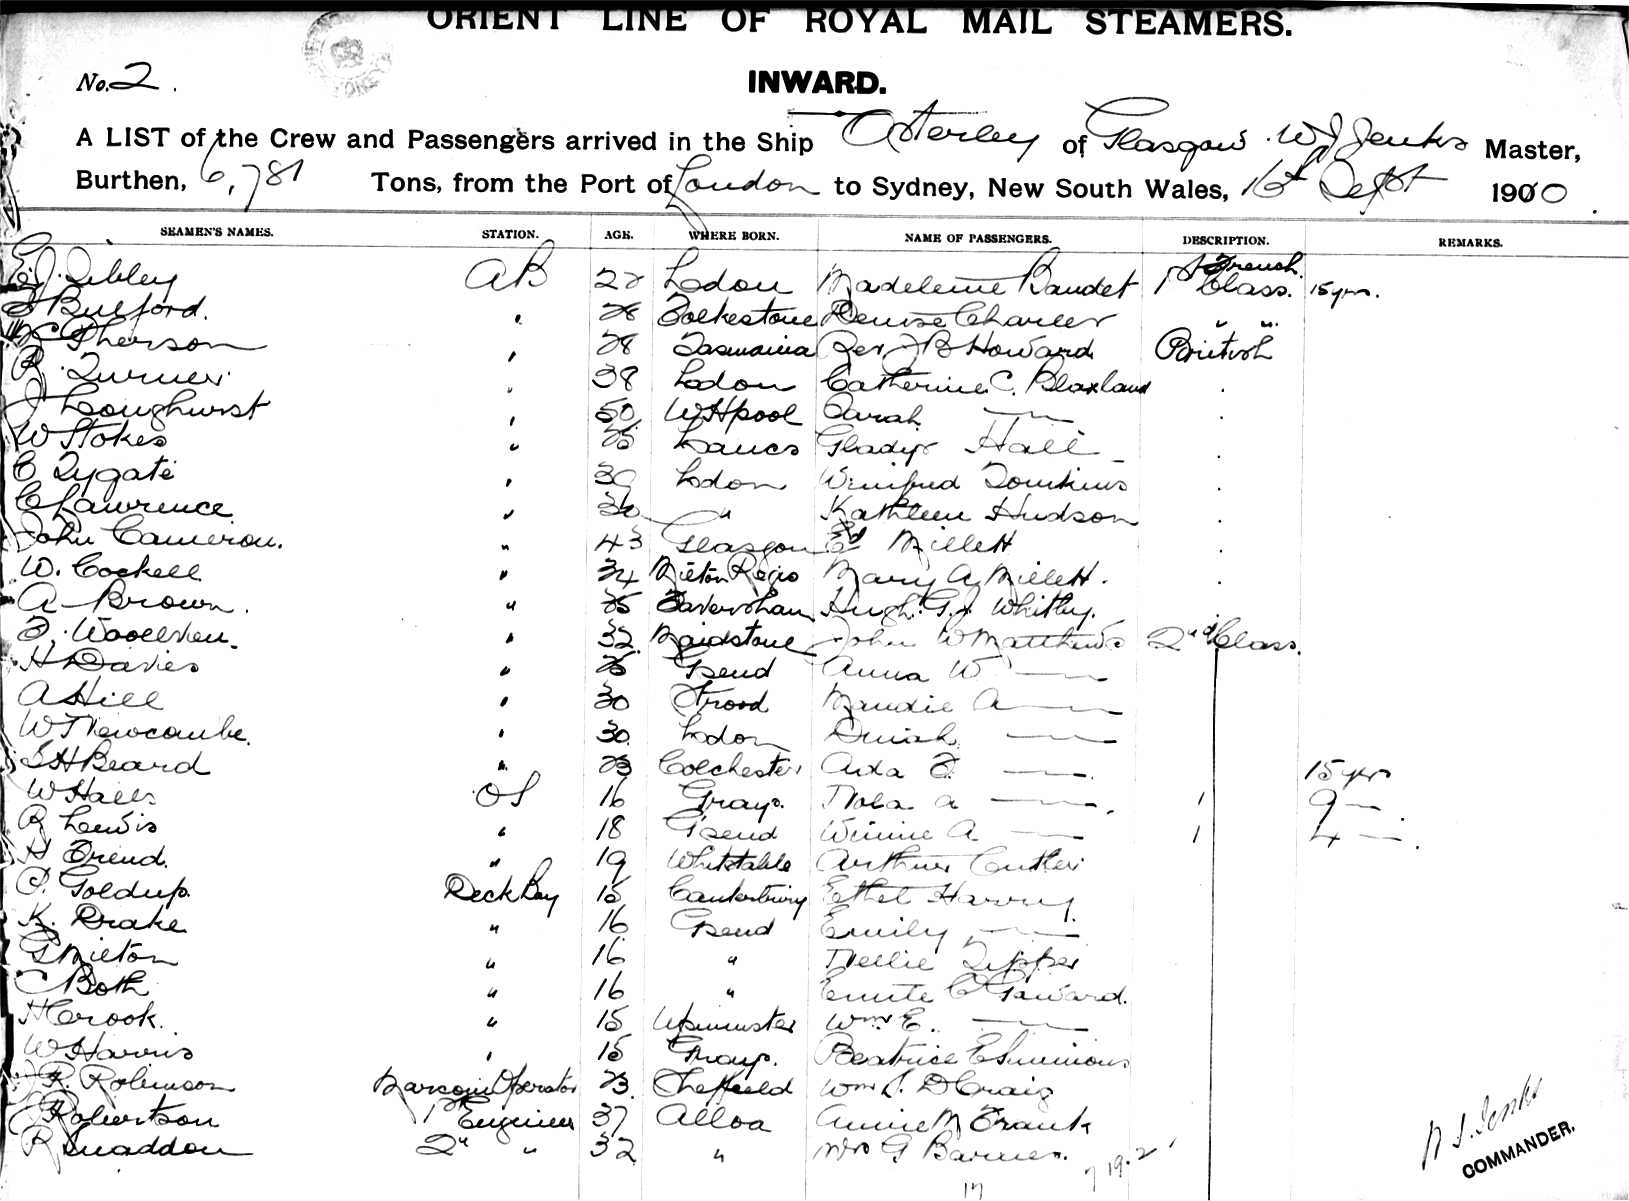 ORIENT LINE OF ROYAL MAIL STEAMERS.
No. 2.
INWARD.
A LIST of the Crew and Passengers arrived in the Ship Osterley of Glasgow. W J Jenks Master,
Burthen, 6,781 Tons, from the Port of London to Sydney, New South Wales, 16th Sept 1900.
SEAMEN'S NAMES. STATION. AGE. WHERE BORN. NAME OF PASSENGERS. DESCRIPTION. REMARKS.
E.J. Sibley AB Lodon Madeleine Baudet 1st Class. French 15 yrs.
Bulford. " 28 Folkestone Denise " "
McPherson " 28 Tasmania Rev J B Howard British
R. Turner " 38 Lodon Catherine C. Blaxland "
J Longhurst " 50 W Hpool Sarah —
W Stokes " Lancs Gladys Hall
C Tygate " 30 Lodon Winifred Tomkins
C Lawrence " 36 " Kathleen Hudson
John Cameron. " 43 Glasgow Ed Millett
W. Cockell " 34 Milton Regis Mary A Millett.
A Brown. " Faversham Hugh. G. J Whitley.
" 32 Maidstone John W Matthews 2nd Class.
H Davies " Gsend Anna W —
A Hill " 30 Strood Maudie A —
W Newcombe. " 30 Lodon Dinah —
H Beard " 23 Colchester Ada F. — 15 yrs
W Halls OS 16 Grays. Nola A — 1 9 —
R Lewis " 18 Gsend Winnie A — 1 4 —
H Friend. " 19 Whitstable Arthur Cutler
Goldup. Deck Boy 15 Canterbury Ethel Harvey
K. Drake " 16 Gsend Emily —
G Milton " 16 " Nellie Tipper
C Both " 16 " C Gaward.
H Crook. " 15 Upminster Wm. E. —
W Harris " 15 Grays. Beatrice E Simmons
J R. Robinson Marconi Operator 23 Sheffield Wm. J. D Craig
J Robertson 1st Engineer 37 Alloa Annie M Frank
R Snaddon 2nd " 32 " Mrs G Barnes.
17
7 19. 2
W J. Jenks
COMMANDER.